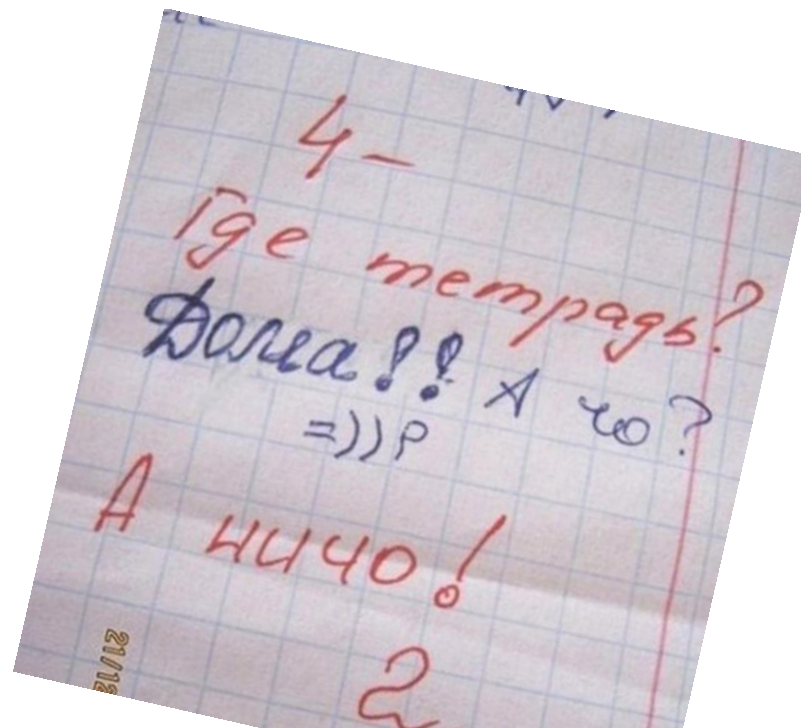 4-
Где тетрадь?
Дома!! А чо?
=))P
А ничо!
2
21/12